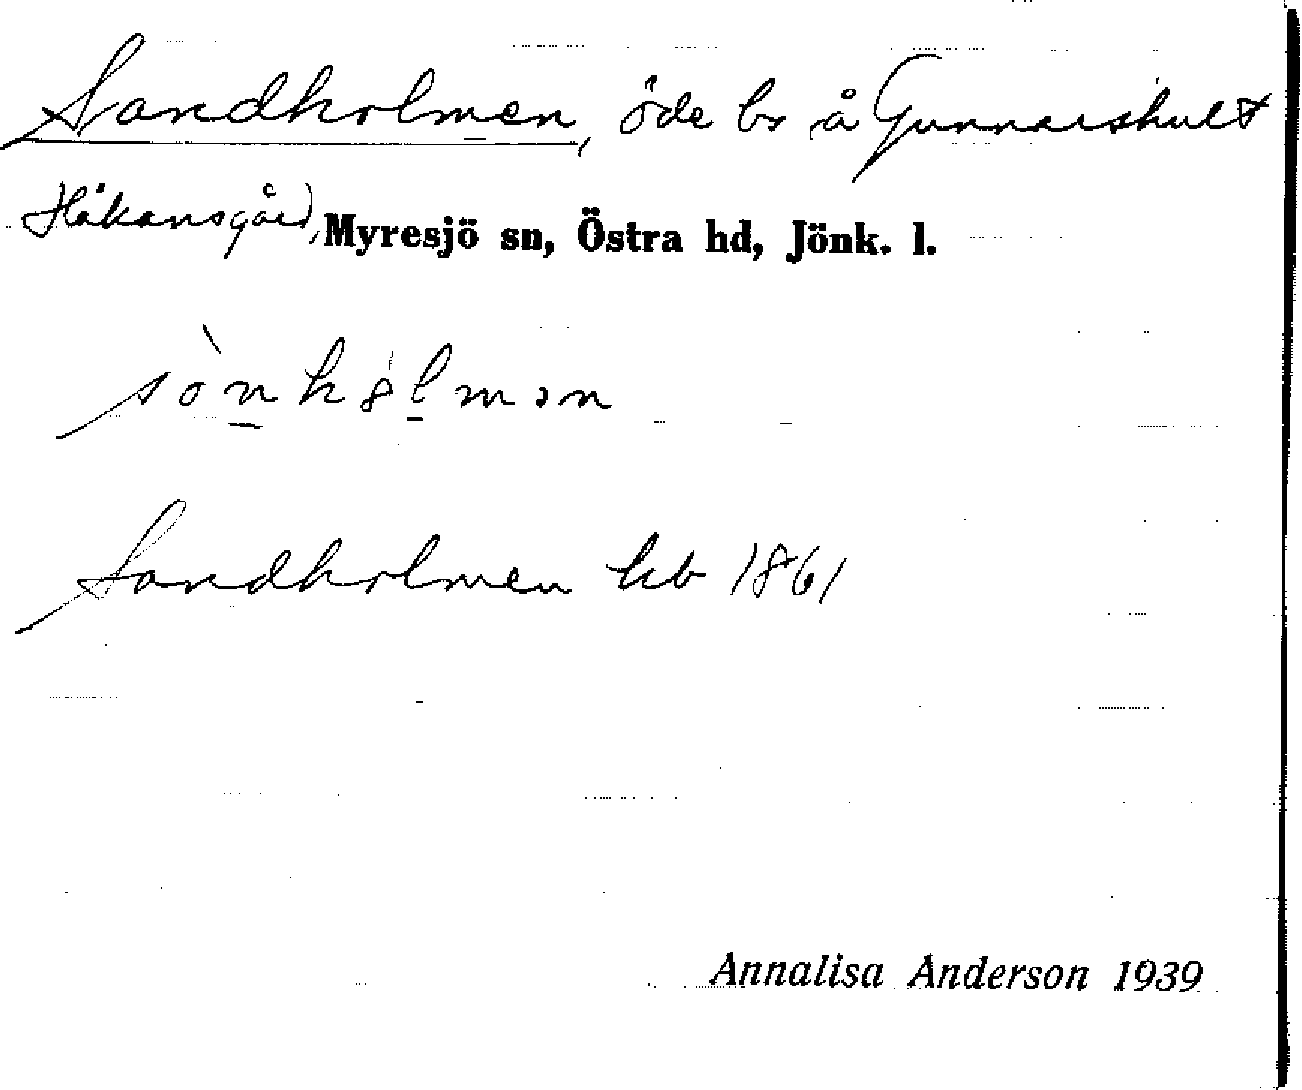 Sandholmen, öde bs å Gunnarshult
Håkansgård, Myresjö sn, Östra hd, Jönk. l.
sònhólmən
Sandholmen hb 1861
Annalisa Anderson 1939